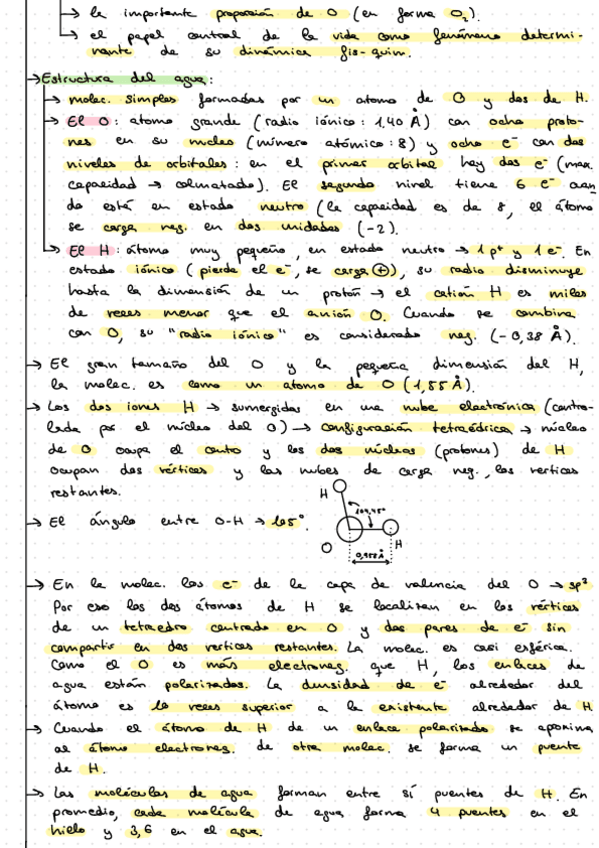 → la importante proporción de O (en forma O₂).
→ el papel central de la vida como fenómeno determi-
nante de su dinámica fís-quím.
→ Estructura del agua:
→ molec. simples formadas por un atomo de O y dos de H.
→ El O: atomo grande (radio iónico: 1,40 Å) con ocho proto-
nes en su nucleo (número atómico: 8) y ocho e⁻ con dos
niveles de orbitales: en el primer orbital hay dos e⁻ (max.
capacidad → colmatado). El segundo nivel tiene 6 e⁻ cuan
do está en estado neutro (la capacidad es de 8, el átomo
se carga neg. en dos unidades (-2).
→ El H: átomo muy pequeño, en estado neutro → 1 p⁺ y 1 e⁻. En
estado iónico (pierde el e⁻, se carga ⊕), su radio disminuye
hasta la dimensión de un protón → el catión H es miles
de veces menor que el anión O. Cuando se combina
con O, su "radio iónico" es considerado neg. (-0,38 Å).
→ El gran tamaño del O y la pequeña dimensión del H,
la molec. es como un atomo de O (1,55 Å).
→ Los dos iones H → sumergidos en una nube electrónica (contro-
lada por el núcleo del O) → configuración tetraédrica → núcleo
de O ocupa el centro y los dos núcleos (protones) de H
ocupan dos vértices y las nubes de carga neg., los vertices
restantes.
H
→ El ángulo entre O-H → 105°.
104,45°
O
H
0,958 Å
→ En la molec. los e⁻ de la capa de valencia del O → sp³
Por eso los dos átomos de H se localizan en los vértices
de un tetraedro centrado en O y dos pares de e⁻ sin
compartir en dos vertices restantes. La molec. es casi esférica.
Como el O es más electroneg. que H, los enlaces de
agua están polarizados. La densidad de e⁻ alrededor del
átomo es 10 veces superior a la existente alrededor de H
→ Cuando el átomo de H de un enlace polarizado se aproxima
al átomo electroneg. de otra molec. se forma un puente
de H.
→ Las moléculas de agua forman entre sí puentes de H. En
promedio, cada molécula de agua forma 4 puentes en el
hielo y 3,6 en el agua.